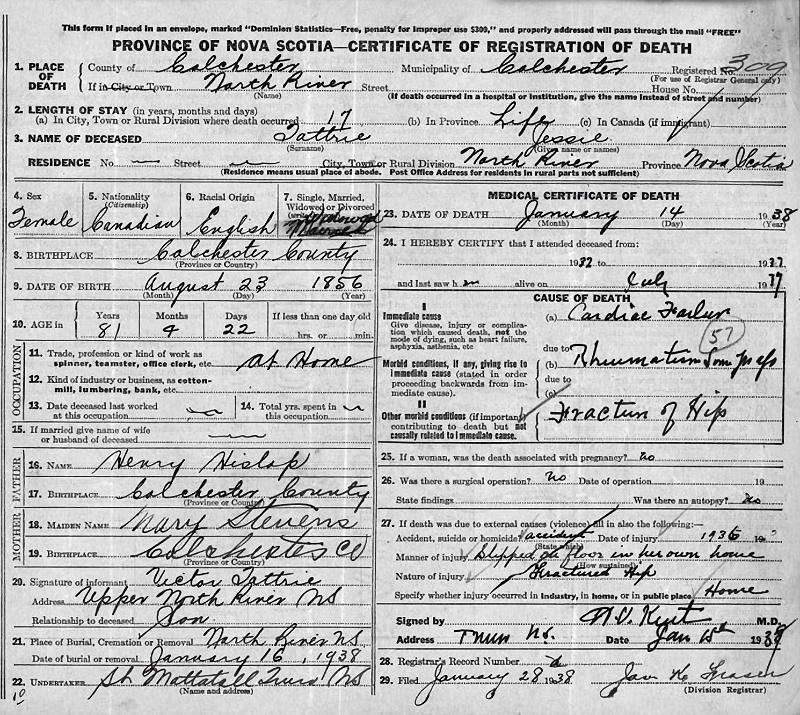 This form if placed in an envelope, marked "Dominion Statistics—Free, penalty for improper use $300," and properly addressed will pass through the mail "FREE"
PROVINCE OF NOVA SCOTIA—CERTIFICATE OF REGISTRATION OF DEATH
1. PLACE OF DEATH County of Colchester Municipality of Colchester Registered No. 309
(For use of Registrar General only)
If in City or Town North River Street House No.
(Name) (If death occurred in a hospital or institution, give the name instead of street and number)
2. LENGTH OF STAY (in years, months and days)
(a) In City, Town or Rural Division where death occurred 17 (b) In Province Life (c) In Canada (if immigrant)
3. NAME OF DECEASED Tattrie Jessie
(Surname) (Given name or names)
RESIDENCE No. — Street — City, Town or Rural Division North River Province Nova Scotia
(Residence means usual place of abode. Post Office Address for residents in rural parts not sufficient)
4. Sex Female
5. Nationality (Citizenship) Canadian
6. Racial Origin English
7. Single, Married, Widowed or Divorced Widowed
8. BIRTHPLACE Colchester County
(Province or Country)
9. DATE OF BIRTH August 23 1856
(Month) (Day) (Year)
10. AGE in Years 81 Months 4 Days 22 If less than one day old hrs. or min.
OCCUPATION
11. Trade, profession or kind of work as spinner, teamster, office clerk, etc. at Home
12. Kind of industry or business, as cotton-mill, lumbering, bank, etc.
13. Date deceased last worked at this occupation
14. Total yrs. spent in this occupation
15. If married give name of wife or husband of deceased —
FATHER
16. NAME Henry Hislop
17. BIRTHPLACE Colchester County
(Province or Country)
MOTHER
18. MAIDEN NAME Mary Stevens
19. BIRTHPLACE Colchester Co
(Province or Country)
20. Signature of informant Victor Tattrie
Address Upper North River NS
Relationship to deceased Son
21. Place of Burial, Cremation or Removal North River NS
Date of burial or removal January 16, 1938
22. UNDERTAKER Mattatall Truro NS
(Name and address)
10
MEDICAL CERTIFICATE OF DEATH
23. DATE OF DEATH January 14 1938
(Month) (Day) (Year)
24. I HEREBY CERTIFY that I attended deceased from:
1937 to 1937
and last saw h alive on July 1937
CAUSE OF DEATH
I
Immediate cause
Give disease, injury or complication which caused death, not the mode of dying, such as heart failure, asphyxia, asthenia, etc
(a) Cardiac Failure
57
due to
Morbid conditions, if any, giving rise to immediate cause (stated in order proceeding backwards from immediate cause).
(b) Rheumatism
due to
(c)
II
Other morbid conditions (if important) contributing to death but not causally related to immediate cause.
Fracture of Hip
25. If a woman, was the death associated with pregnancy? no
26. Was there a surgical operation? no Date of operation 19
State findings Was there an autopsy? no
27. If death was due to external causes (violence) fill in also the following:—
Accident, suicide or homicide? accident Date of injury 1936 19
(State which)
Manner of injury Slipped on floor in her own home
(How sustained)
Nature of injury Fractured Hip
Specify whether injury occurred in Industry, in home, or in public place. Home
Signed by M.D.
Address Truro NS. Date Jan 15th 1938
28. Registrar's Record Number
29. Filed January 28 1938 Fraser
(Division Registrar)